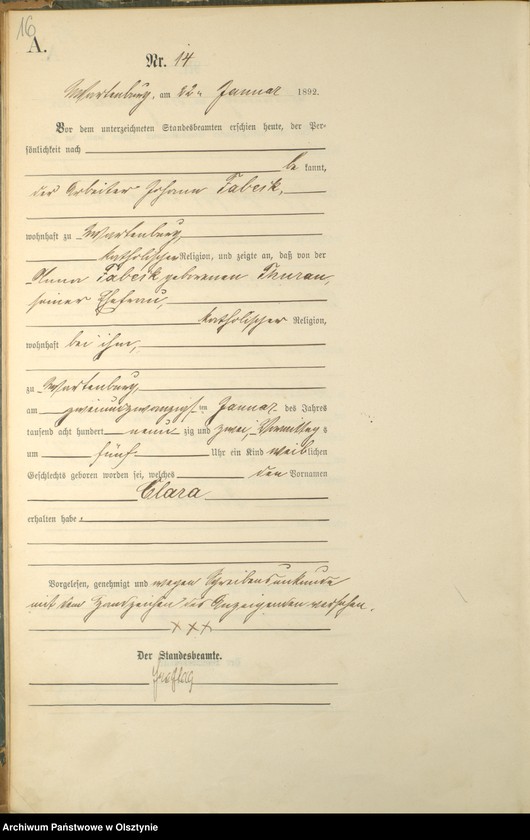 16
A.
Nr. 14
Wartenburg, am 22ten Januar 1892.
Vor dem unterzeichneten Standesbeamten erschien heute, der Per-
sönlichkeit nach
be kannt,
der Arbeiter Johann Fabeck,
wohnhaft zu Wartenburg,
katholischer Religion, und zeigte an, daß von der
Anna Fabeck geborenen Thurau,
seiner Ehefrau,
katholischer Religion,
wohnhaft bei ihm,
zu Wartenburg,
am zweiundzwanzigsten Januar des Jahres
tausend acht hundert neun zig und zwei, Vormittags
um fünf Uhr ein Kind weiblichen
Geschlechts geboren worden sei, welches den Vornamen
Clara
erhalten habe.
Vorgelesen, genehmigt und wegen Schreibensunkunde
mit dem Handzeichen des Anzeigenden versehen.
+++
Der Standesbeamte.
Archiwum Państwowe w Olsztynie